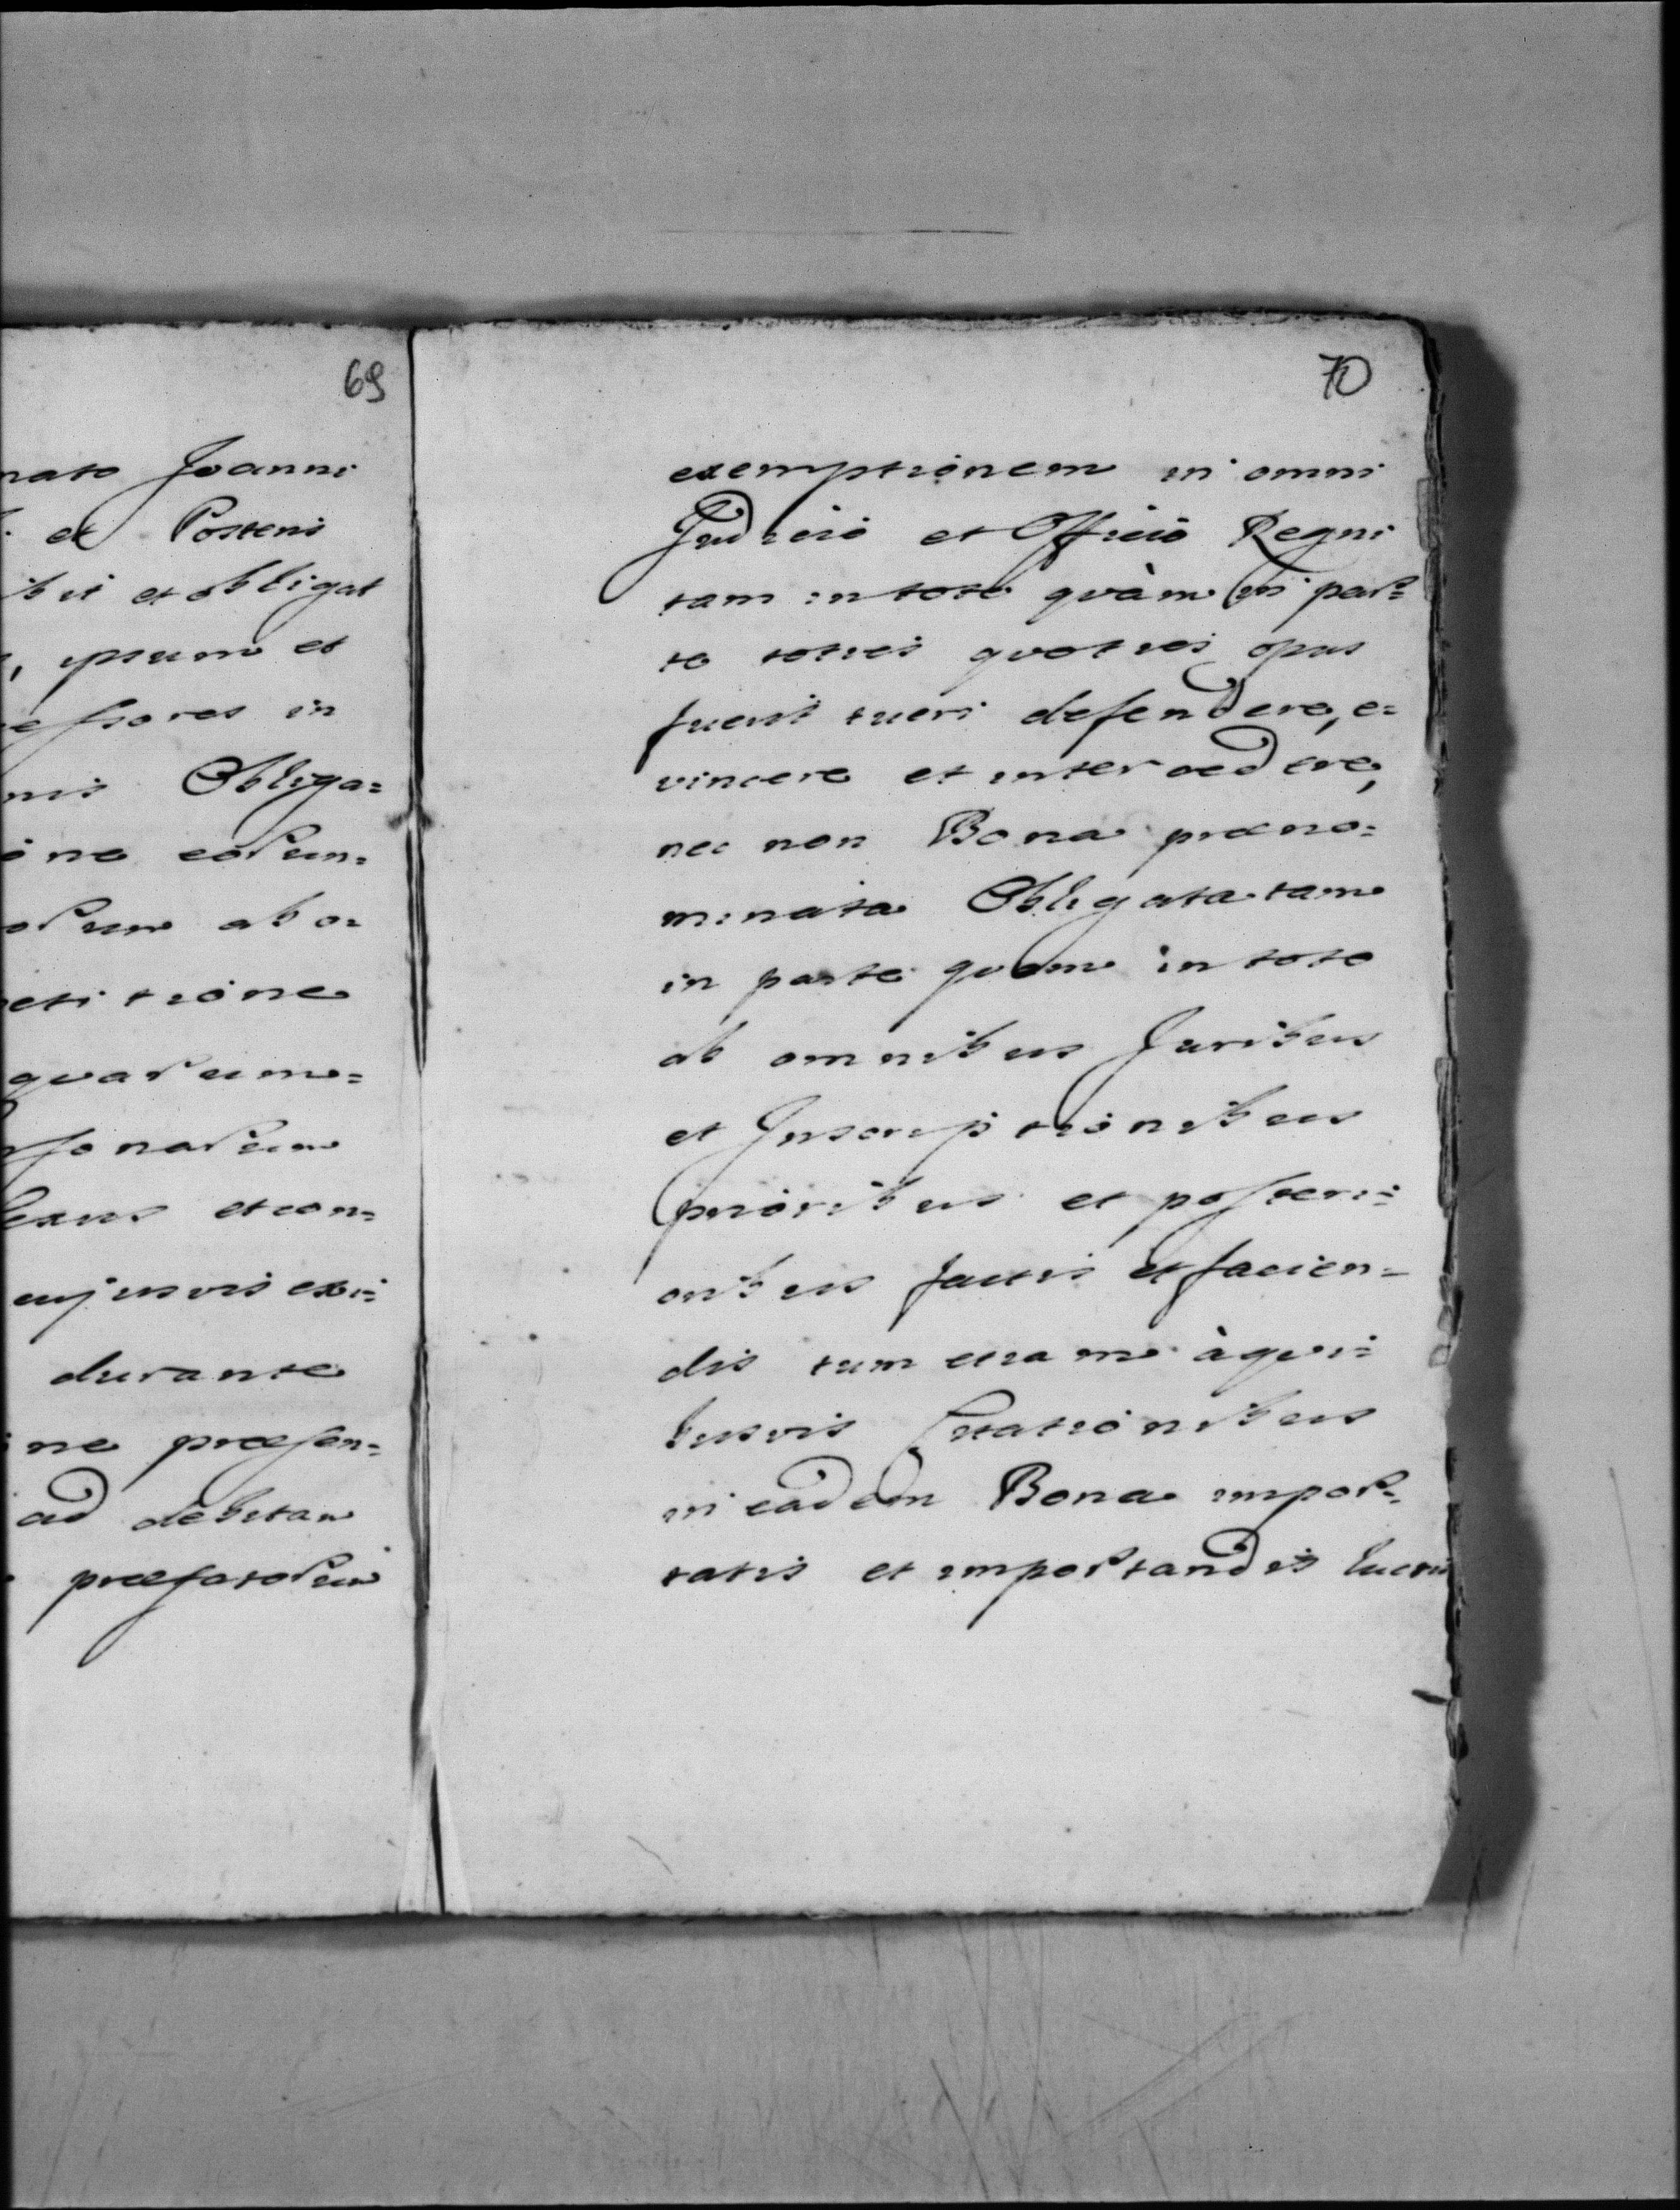 69
nato Joanni
et Posteris
bit et obligat
, ipsum et
efsores in
nis Obliga=
one eorun=
orum abo=
etitione
quarum=
sonarum
sexus et con=
cujusvis exi=
durante
ne præsen=
ad debitam
præfatorum
70
exemptionem in omni
Judicio et Officio Regni
tam in toto quàm in par=
te toties quoties opus
fuerit tueri defendere, e=
vincere et intercedere,
nec non Bona præno=
minata Obligata tam
in parte quam in toto
ab omnibus Juribus
et Inscriptionibus
prioribus et posteri=
oribus factis et facien=
dis tum etiam à qui=
busvis Citationibus
in eadem Bona impor=
tatis et importandis lucris